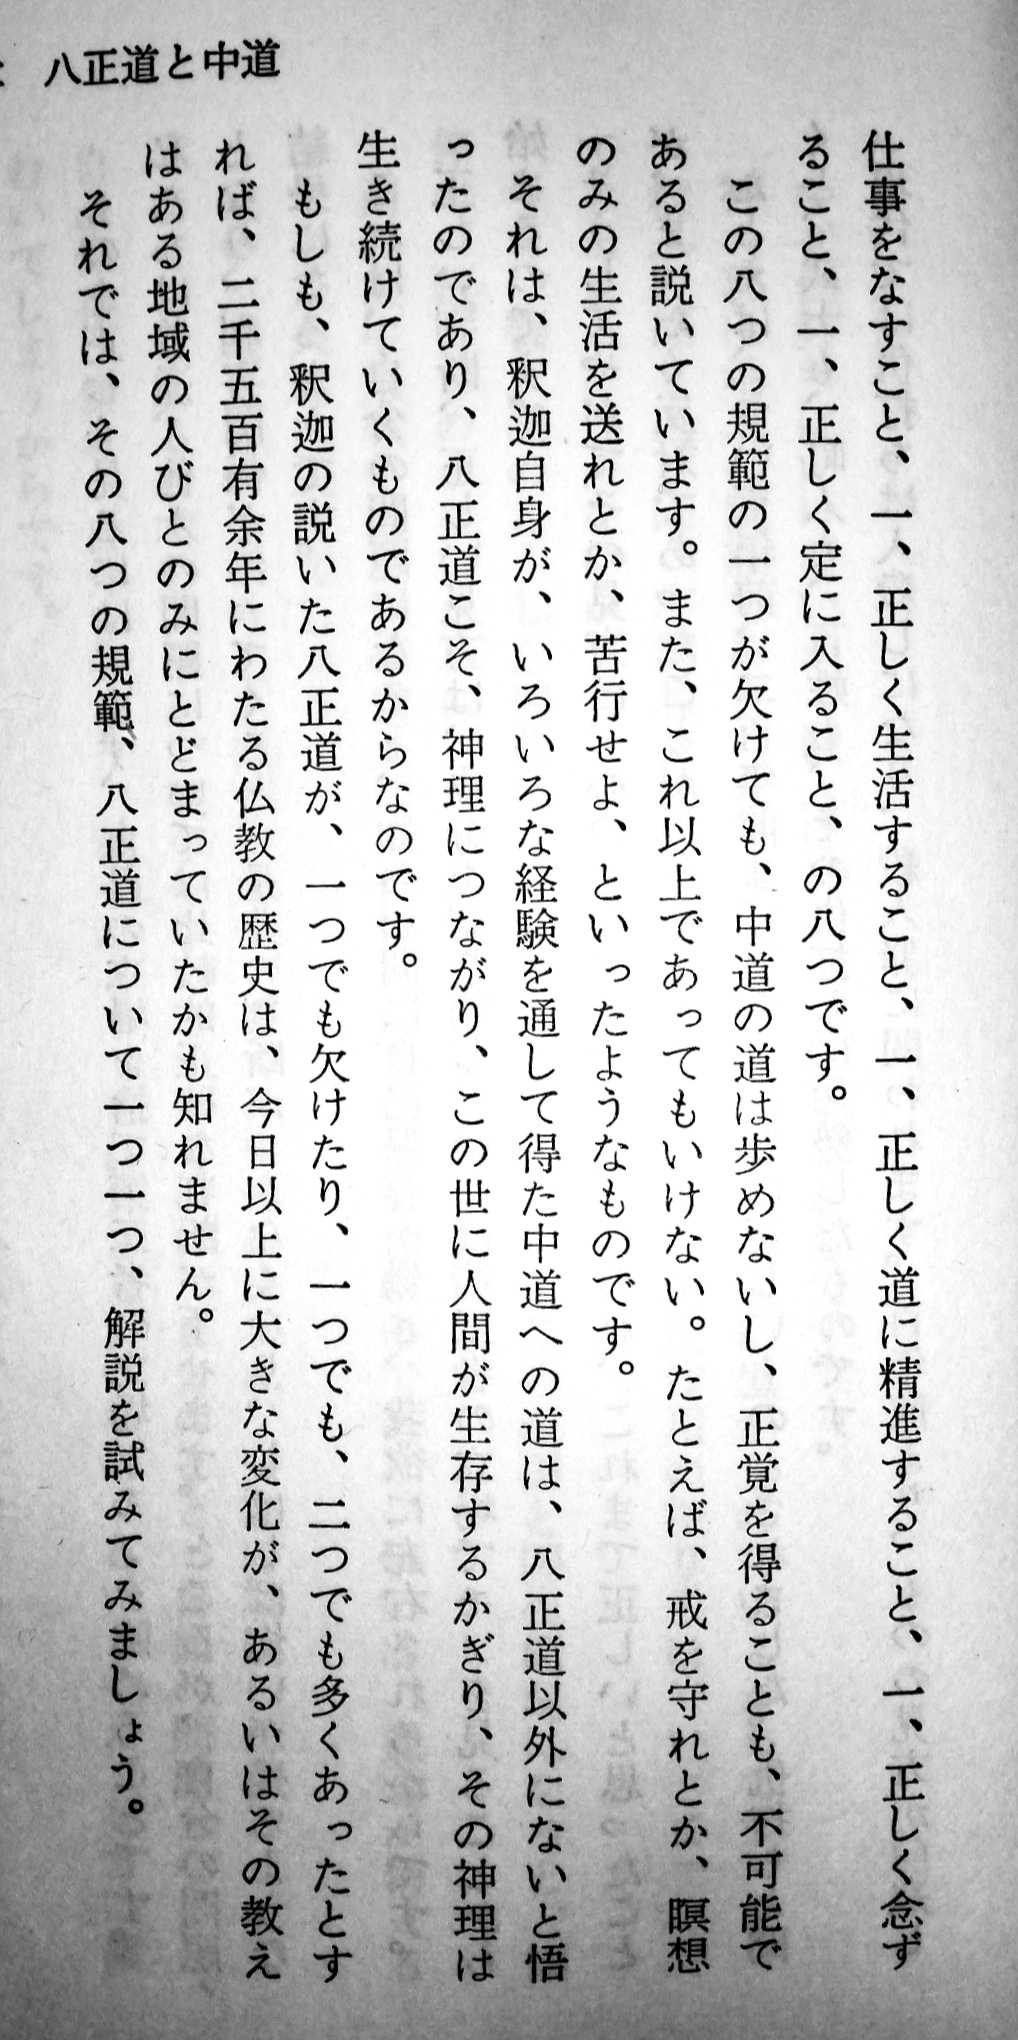 八正道と中道
仕事をなすこと、一、正しく生活すること、一、正しく道に精進すること、一、正しく念ず
ること、一、正しく定に入ること、の八つです。
この八つの規範の一つが欠けても、中道の道は歩めないし、正覚を得ることも、不可能で
あると説いています。また、これ以上であってもいけない。たとえば、戒を守れとか、瞑想
のみの生活を送れとか、苦行せよ、といったようなものです。
それは、釈迦自身が、いろいろな経験を通して得た中道への道は、八正道以外にないと悟
ったのであり、八正道こそ、神理につながり、この世に人間が生存するかぎり、その神理は
生き続けていくものであるからなのです。
もしも、釈迦の説いた八正道が、一つでも欠けたり、一つでも、二つでも多くあったとす
れば、二千五百有余年にわたる仏教の歴史は、今日以上に大きな変化が、あるいはその教え
はある地域の人びとのみにとどまっていたかも知れません。
それでは、その八つの規範、八正道について一つ一つ、解説を試みてみましょう。